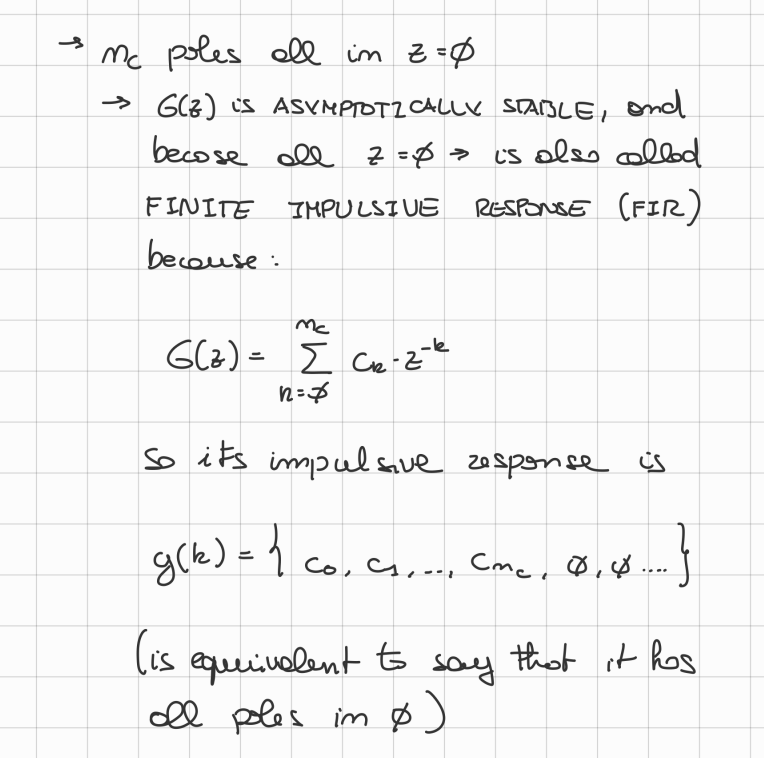 → nc poles all in z=∅
→ G(z) is ASYMPTOTICALLY STABLE, and
becose all z=∅ → is also called
FINITE IMPULSIVE RESPONSE (FIR)
because:
G(z) = nc ∑ k=∅ ck · z^-k
so its impulsive response is
g(k) = { c0, c1, ..., cnc, ∅, ∅ .... }
(is equivalent to say that it has
all poles in ∅)